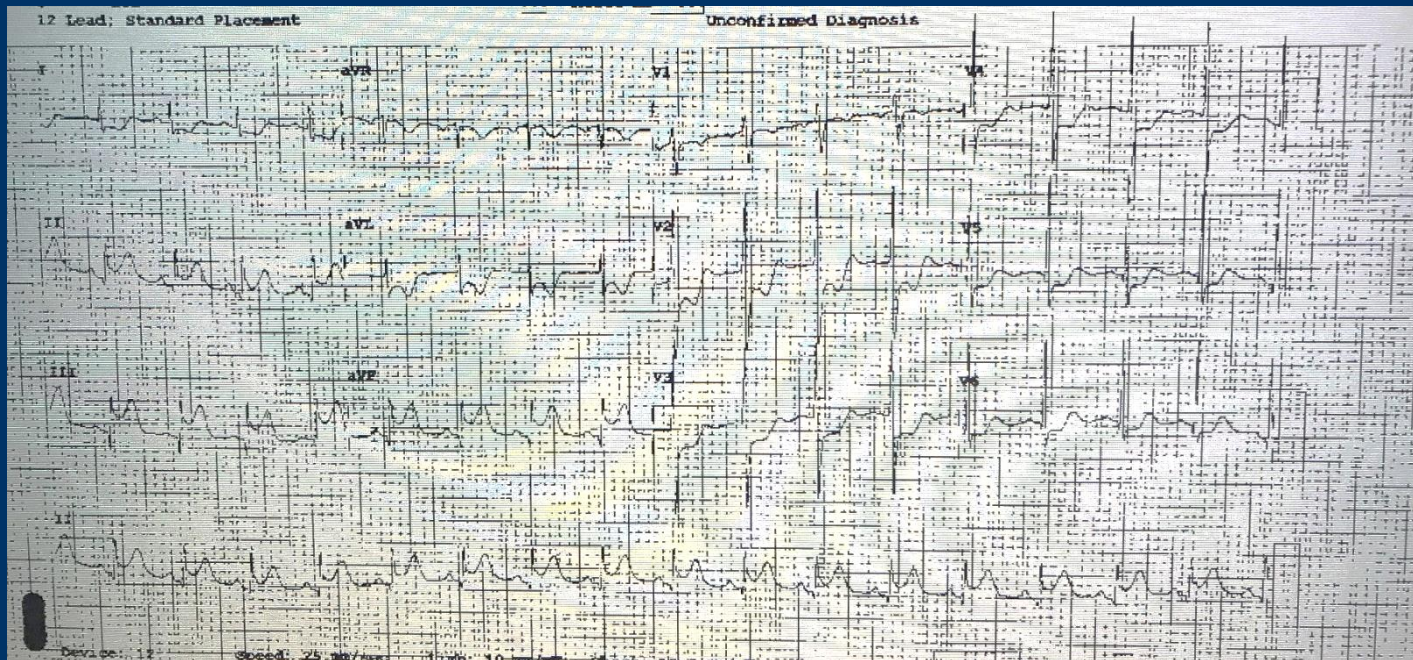 12 Lead; Standard Placement
Unconfirmed Diagnosis
I aVR V1 V4
II aVL V2 V5
III aVF V3 V6
II
Device: 12 Speed: 25